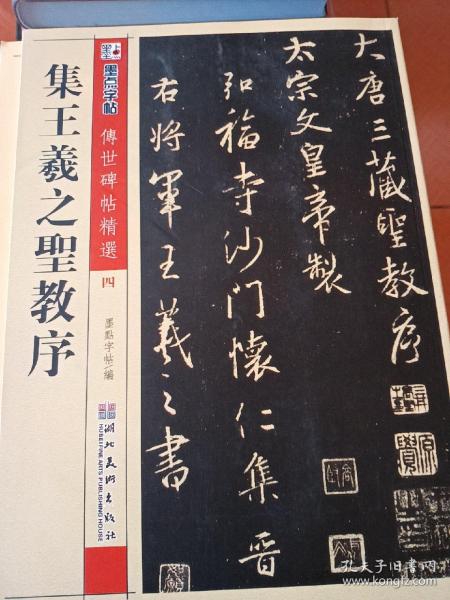 大唐三藏聖教序
太宗文皇帝製
弘福寺沙門懷仁集晉
右將軍王羲之書
墨点
墨点字帖
傳世碑帖精選
四
墨點字帖/編
湖北美術出版社
HUBEI FINE ARTS PUBLISHING HOUSE
集王羲之聖教序
孔夫子旧书网